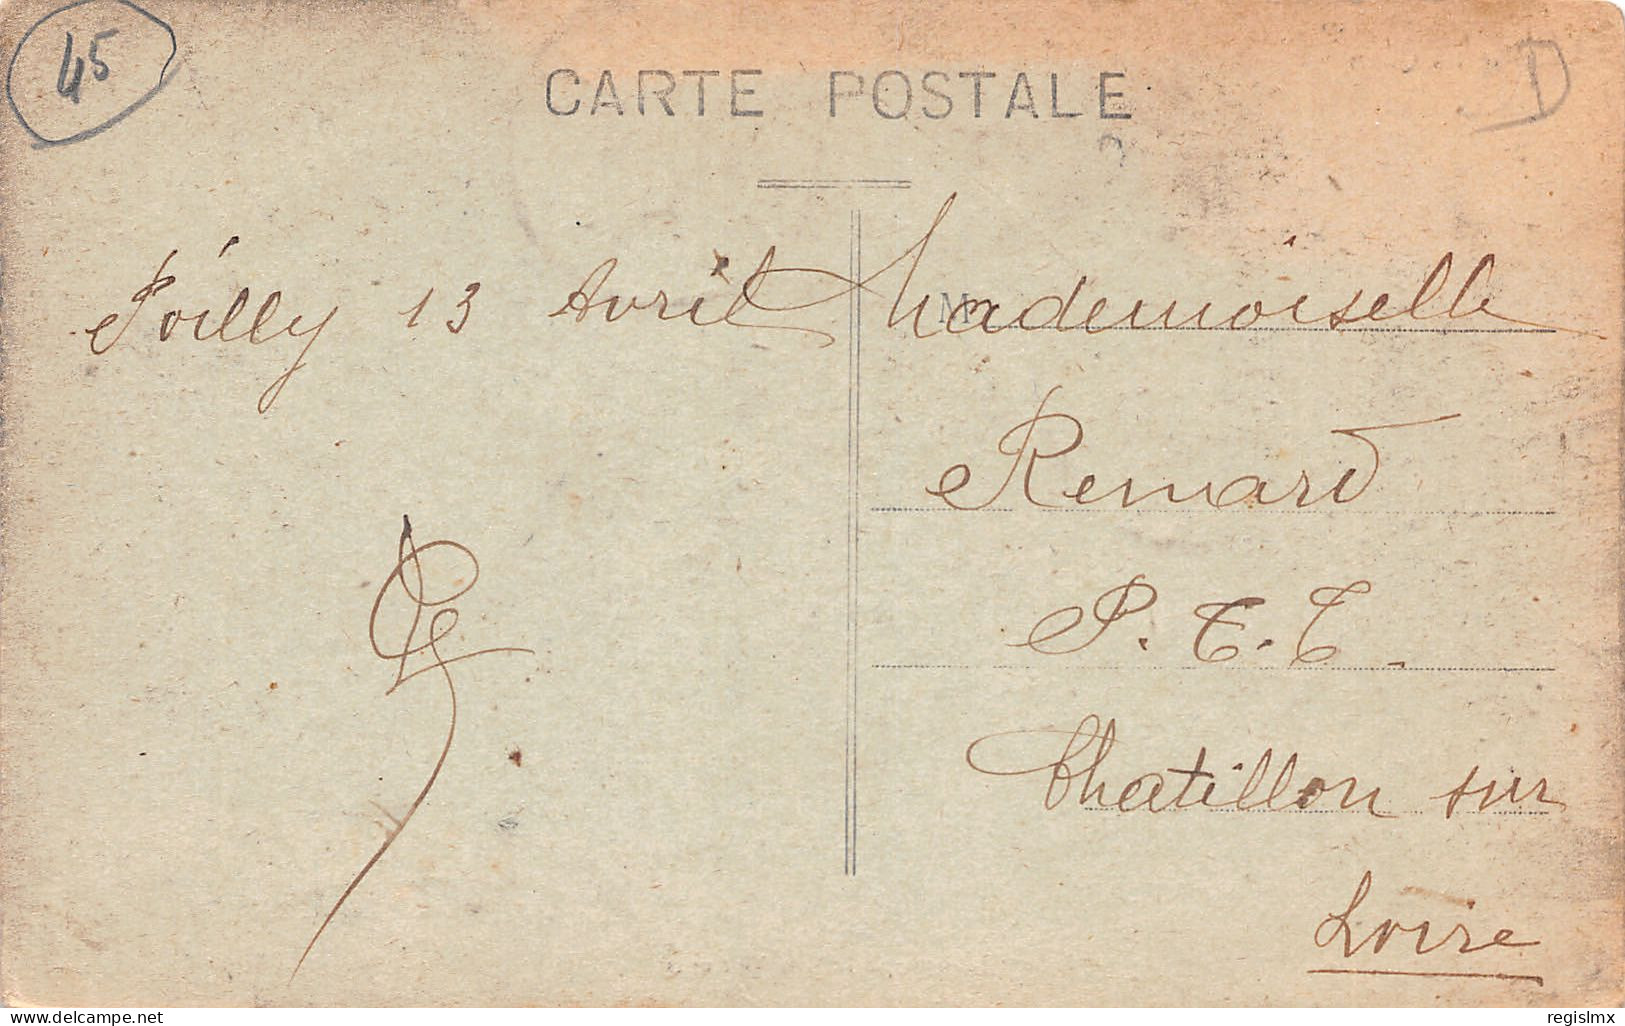 45
CARTE POSTALE
Poilly 13 Avril
M
Mademoiselle
Renard
P. T. T.
Chatillon sur
Loire
delcampe.net
regislmx